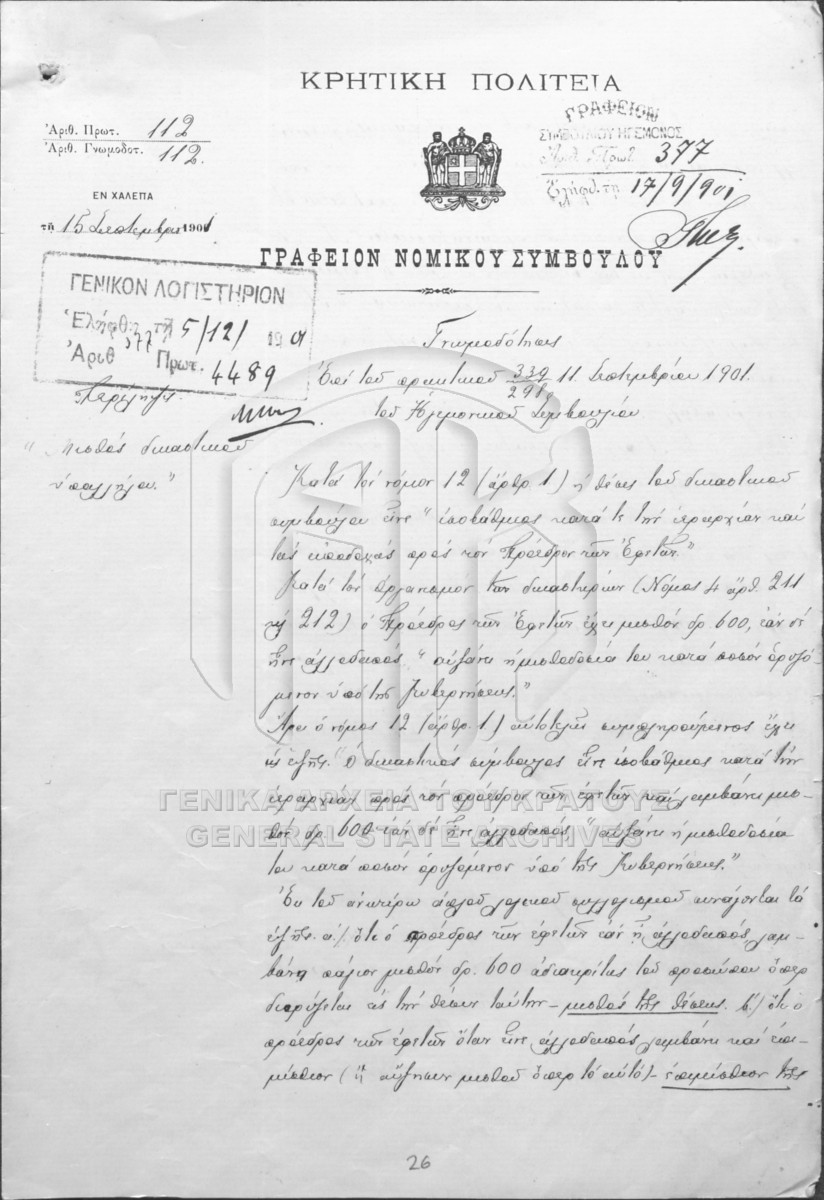 ΚΡΗΤΙΚΗ ΠΟΛΙΤΕΙΑ
Ἀριθ. Πρωτ. 112
Ἀριθ. Γνωμοδοτ. 112.
ΕΝ ΧΑΛΕΠΑ
τῇ 15 Σεπτεμβρίου 1901
ΓΡΑΦΕΙΟΝ
ΣΥΜΒΟΥΛΙΟΥ ΗΓΕΜΟΝΟΣ
Ἀριθ. Πρωτ. 377
Ἐλήφθ. τῇ 17/9/901
ΓΡΑΦΕΙΟΝ ΝΟΜΙΚΟΥ ΣΥΜΒΟΥΛΟΥ
ΓΕΝΙΚΟΝ ΛΟΓΙΣΤΗΡΙΟΝ
Ἐλήφθη τῇ 5/12/1901
Ἀριθ Πρωτ. 4489
Περίληψις
"Μισθὸς δικαστικοῦ
ὑπαλλήλου."
Γνωμοδότησις
Ἐπὶ τοῦ πρακτικοῦ 339/291 11 Σεπτεμβρίου 1901.
τοῦ Ἡγεμονικοῦ Συμβουλίου
Κατὰ τὸν νόμον 12 (ἄρθρ. 1) ἡ θέσις τοῦ δικαστικοῦ
συμβούλου εἶνε "ἰσοβάθμιος κατά τε τὴν ἱεραρχίαν καὶ
τὰς ἀποδοχὰς πρὸς τὸν Πρόεδρον τῶν Ἐφετῶν."
Κατὰ τὸν ὀργανισμὸν τῶν δικαστηρίων (Νόμος 4 ἄρθ. 211
καὶ 212) ὁ Πρόεδρος τῶν Ἐφετῶν ἔχει μισθὸν δρ. 600, ἐὰν δέ
εἶνε ἀλλοδαπὸς, "αὐξάνει ἡ μισθοδοσία του κατὰ ποσὸν ὁριζό-
μενον ὑπὸ τῆς Κυβερνήσεως."
Ἄρα ὁ νόμος 12 (ἄρθρ. 1) αὐτοτελῶς συμπληρούμενος ἔχει
ὡς ἑξῆς. "Ὁ δικαστικὸς σύμβουλος εἶνε ἰσοβάθμιος κατὰ τὴν
ἱεραρχίαν πρὸς τὸν πρόεδρον τῶν ἐφετῶν καὶ λαμβάνει μισ-
θὸν δρ. 600 ἐὰν δὲ εἶνε ἀλλοδαπὸς "αὐξάνει ἡ μισθοδοσία
του κατὰ ποσὸν ὁριζόμενον ὑπὸ τῆς Κυβερνήσεως."
Ἐκ τοῦ ἀνωτέρω ἁπλοῦ λογικοῦ συλλογισμοῦ συνάγονται τὰ
ἑξῆς. α.) ὅτι ὁ πρόεδρος τῶν ἐφετῶν ἐὰν ἦ ἀλλοδαπὸς, λαμ-
βάνει πάγιον μισθὸν δρ. 600 ἀδιακρίτως τοῦ προσώπου ὅπερ
διορίζεται εἰς τὴν θέσιν ταύτην – μισθὸς τῆς θέσεως. β.) ὅτι ὁ
πρόεδρος τῶν ἐφετῶν ὅταν εἶνε ἀλλοδαπὸς λαμβάνει καὶ ἐπι-
μίσθιον (ἢ αὔξησιν μισθοῦ ὅπερ τὸ αὐτό) – ἐπιμίσθιον τῆς
26
ΓΕΝΙΚΑ ΑΡΧΕΙΑ ΤΟΥ ΚΡΑΤΟΥΣ
GENERAL STATE ARCHIVES